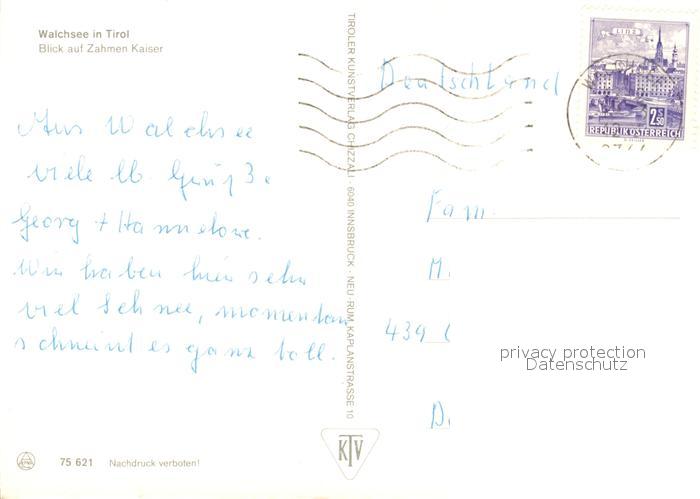 Walchsee in Tirol
Blick auf Zahmen Kaiser
Aus Walchsee
viele lb. Grüße
Georg + Hannelore.
Wir haben hier sehr
viel Schnee, momentan
schneint es ganz toll.
75 621 Nachdruck verboten!
TIROLER KUNSTVERLAG CHIZZALI · 6040 INNSBRUCK - NEU-RUM, KAPLANSTRASSE 10
KTV
Deutschland
LINZ
2.50
S
REPUBLIK ÖSTERREICH
Fam.
M.
439
D.
privacy protection
Datenschutz